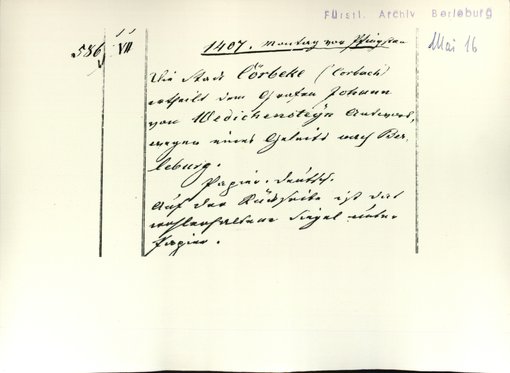 Fürstl. Archiv Berleburg
586 VII
1407. Montag vor Pfingsten
Mai 16
Die Stadt Cörbeke (Corbach)
ertheilt dem Grafen Johann
von Wedichensteyn Antwort,
wegen eines Geleits nach Ber-
leburg.
Papier. deutsch.
Auf der Rückseite ist das
wohlerhaltene Siegel unter
Papier.